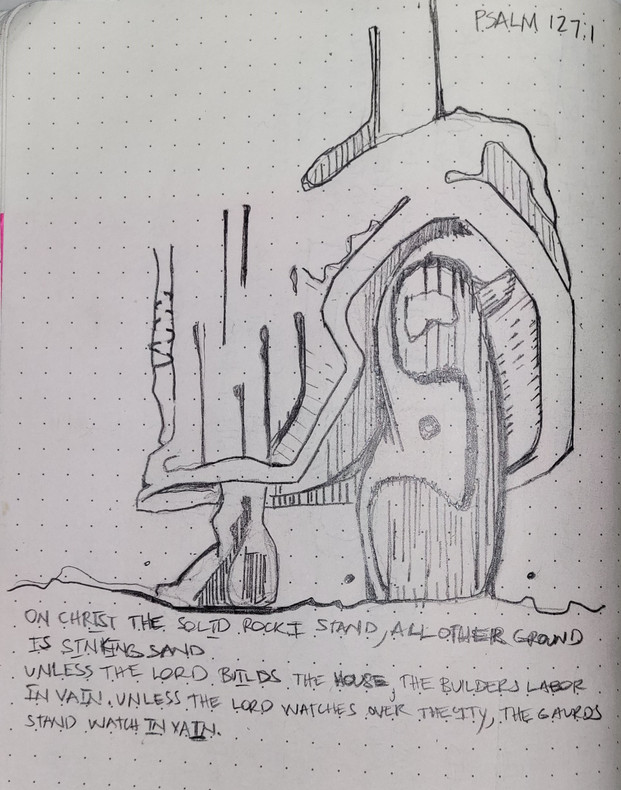 PSALM 127:1
ON CHRIST THE SOLID ROCK I STAND, ALL OTHER GROUND
IS SINKING SAND
UNLESS THE LORD BUILDS THE HOUSE, THE BUILDERS LABOR
IN VAIN. UNLESS THE LORD WATCHES OVER THE CITY, THE GAURDS
STAND WATCH IN VAIN.